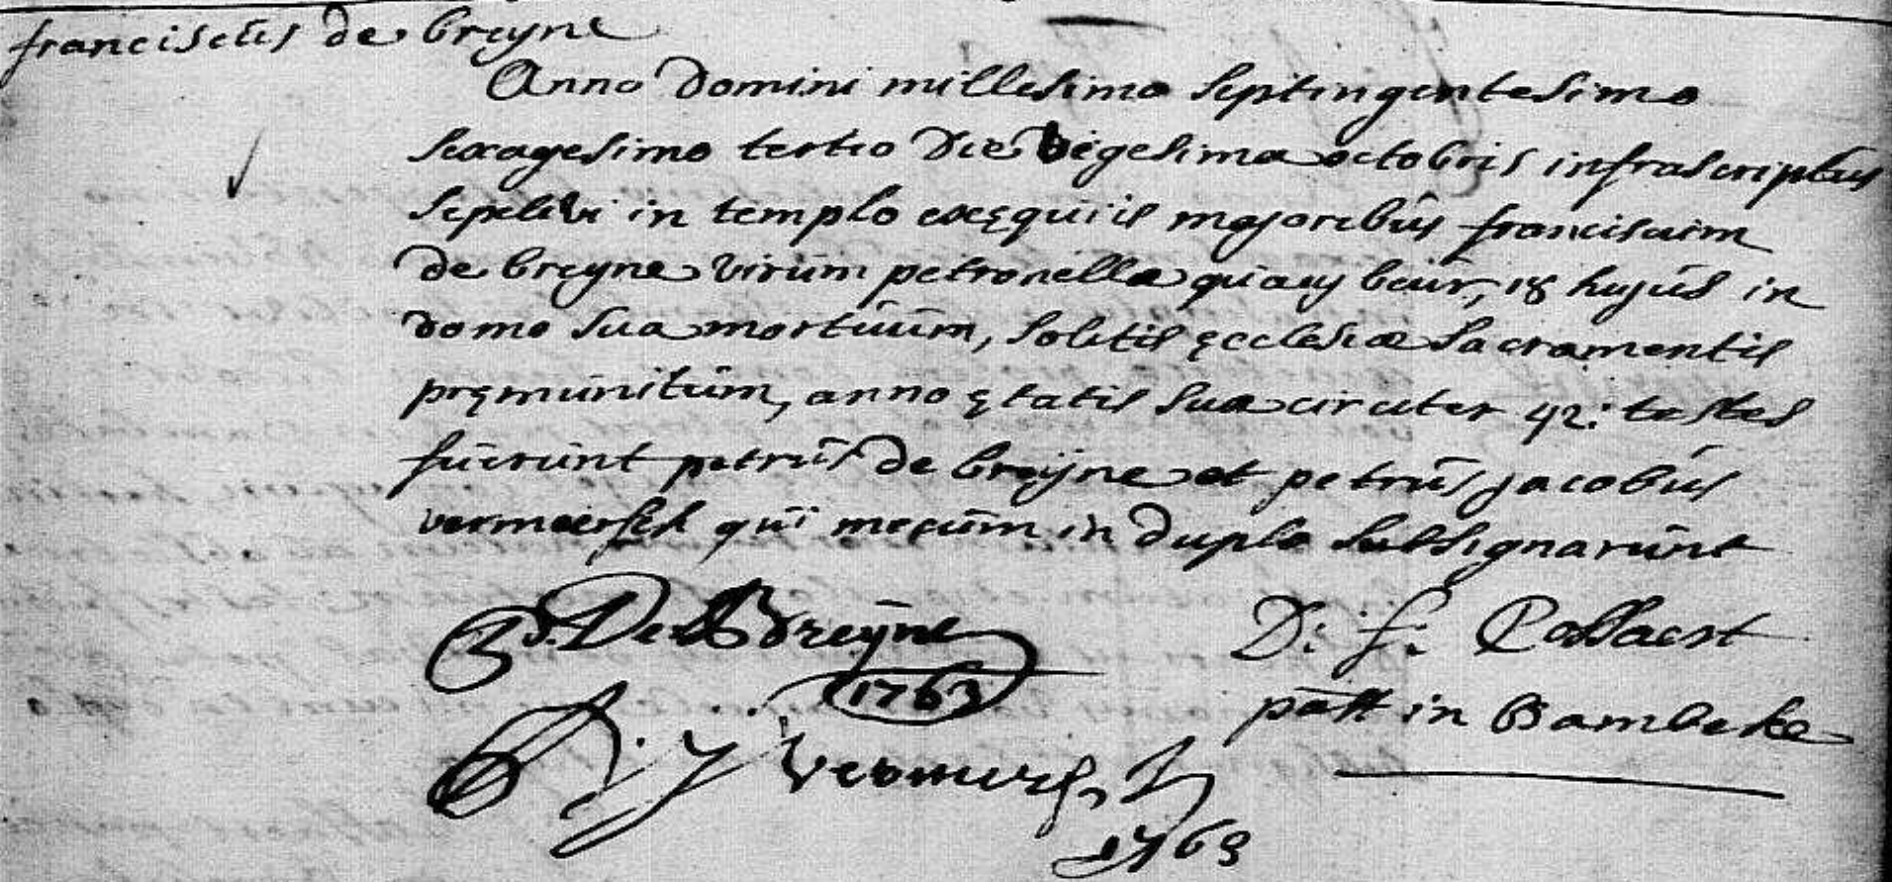 franciscus de breyne
Anno Domini millesimo septingentesimo
sexagesimo tertio Die vigesima octobris infrascriptus
sepelivi in templo exequiis majoribus franciscum
de breyne virum petronilla quaey beur, 18 hujus in
domo sua mortuum, solitis ecclesiæ sacramentis
premunitum, anno etatis sua circiter 42: testes
fuerunt petrus de breyne et petrus jacobus
vermeersch qui mecum in duplo subsignarunt
P. De Breyne
1763
D: f: Collaert
past in Bambeke
P: J: vermersch
1763